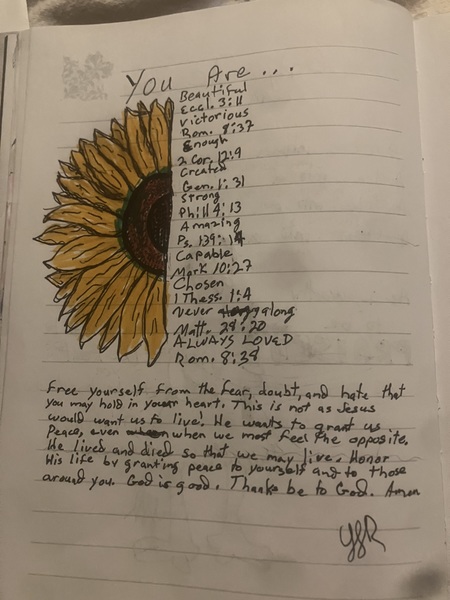 You Are...
Beautiful
Eccl. 3:11
Victorious
Rom. 8:37
Enough
2 Cor. 12:9
Created
Gen. 1:31
Strong
Phil 4:13
Amazing
Ps. 139:14
Capable
Mark 10:27
Chosen
1 Thess. 1:4
Never along
Matt. 28:20
ALWAYS LOVED
Rom. 8:38
Free yourself from the fear, doubt, and hate that
you may hold in your heart. This is not as Jesus
would want us to live. He wants to grant us
Peace, even when we most feel the opposite.
He lived and died so that we may live. Honor
His life by granting peace to yourself and to those
around you. God is good. Thanks be to God. Amen